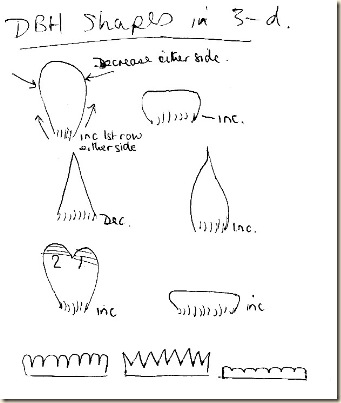 DBH Shapes in 3-d.
Decrease either side.
inc 1st row
either side
inc.
Dec.
inc.
2 1
inc
inc